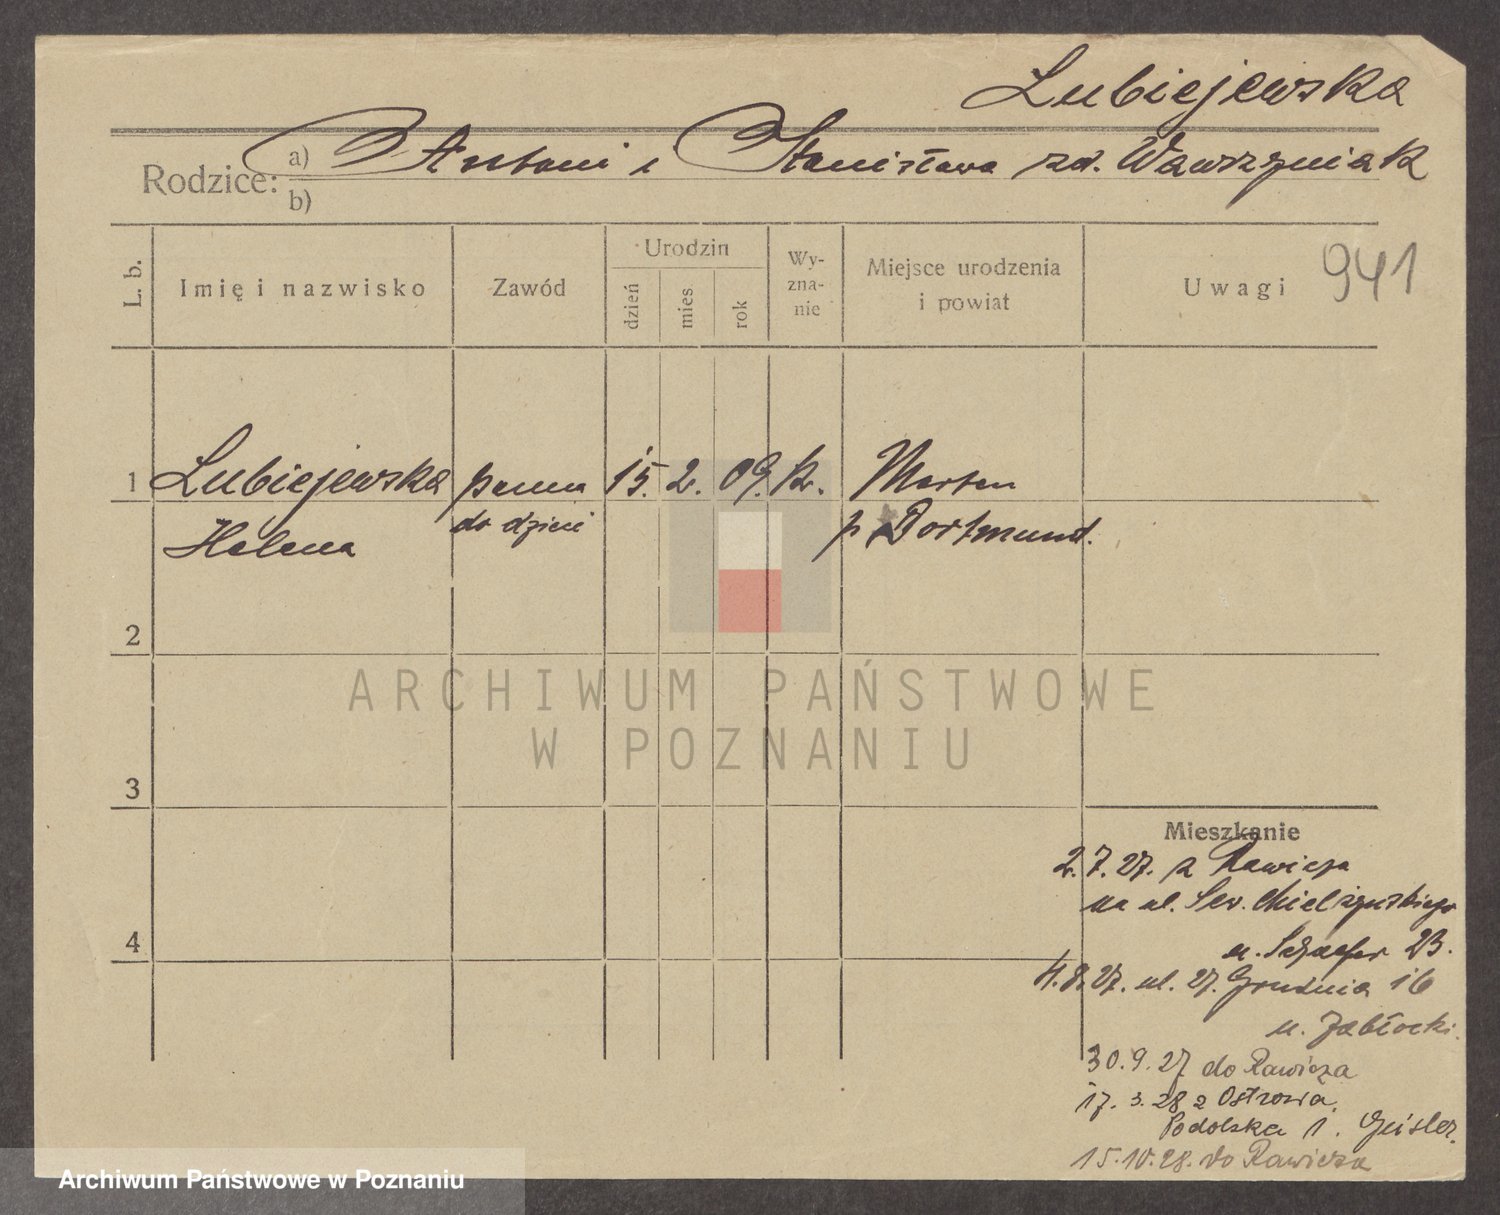 Lubiejewska
Rodzice: a) Antoni i Stanisława zd. Wawrzyniak
b)
L. b.
Imię i nazwisko
Zawód
Urodzin
dzień
mies
rok
Wy-
zna-
nie
Miejsce urodzenia
i powiat
Uwagi
941
1 Lubiejewska panna 15. 2. 09. k. Marten
Helena do dzieci p Dortmund.
2
ARCHIWUM PAŃSTWOWE
W POZNANIU
3
Mieszkanie
2.7.27. z Rawicza
na ul. Sew. Mielżyńskiego
u. Schaefer 23.
4
4.8.27. ul. 27. Grudnia 16
u. Zabłocki.
30.9.27 do Rawicza
17.3.28 z Ostrowa,
Podolska 1. Geisler.
15.10.28. do Rawicza
Archiwum Państwowe w Poznaniu